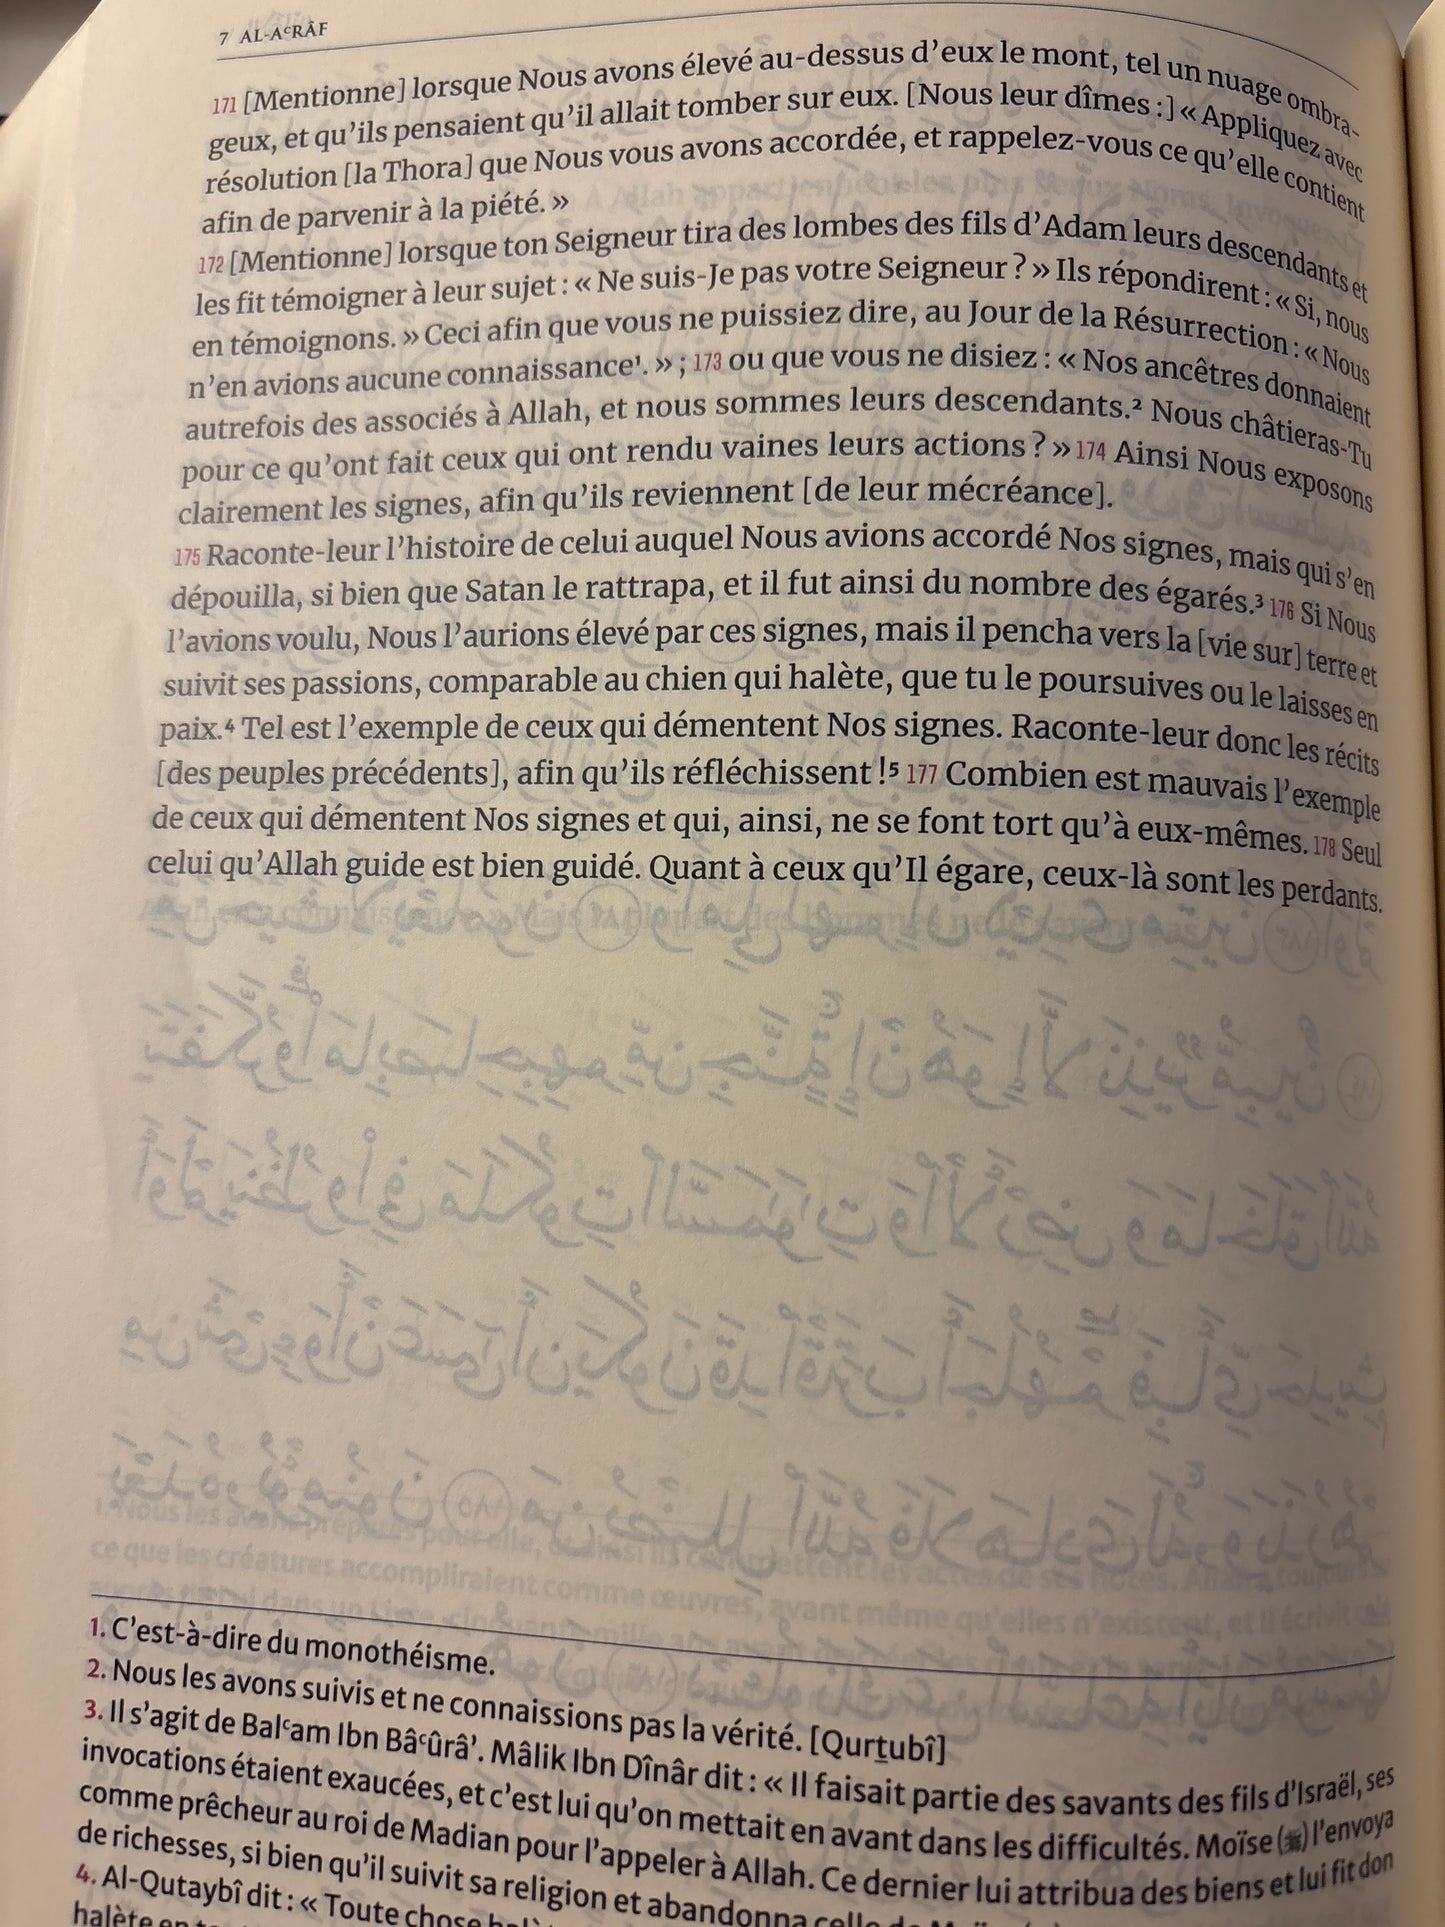 7 AL-AᶜRÂF
171 [Mentionne] lorsque Nous avons élevé au-dessus d’eux le mont, tel un nuage ombra-
geux, et qu’ils pensaient qu’il allait tomber sur eux. [Nous leur dîmes :] « Appliquez avec
résolution [la Thora] que Nous vous avons accordée, et rappelez-vous ce qu’elle contient
afin de parvenir à la piété. »
172 [Mentionne] lorsque ton Seigneur tira des lombes des fils d’Adam leurs descendants et
les fit témoigner à leur sujet : « Ne suis-Je pas votre Seigneur ? » Ils répondirent : « Si, nous
en témoignons. » Ceci afin que vous ne puissiez dire, au Jour de la Résurrection : « Nous
n’en avions aucune connaissance¹. » ; 173 ou que vous ne disiez : « Nos ancêtres donnaient
autrefois des associés à Allah, et nous sommes leurs descendants.² Nous châtieras-Tu
pour ce qu’ont fait ceux qui ont rendu vaines leurs actions ? » 174 Ainsi Nous exposons
clairement les signes, afin qu’ils reviennent [de leur mécréance].
175 Raconte-leur l’histoire de celui auquel Nous avions accordé Nos signes, mais qui s’en
dépouilla, si bien que Satan le rattrapa, et il fut ainsi du nombre des égarés.³ 176 Si Nous
l’avions voulu, Nous l’aurions élevé par ces signes, mais il pencha vers la [vie sur] terre et
suivit ses passions, comparable au chien qui halète, que tu le poursuives ou le laisses en
paix.⁴ Tel est l’exemple de ceux qui démentent Nos signes. Raconte-leur donc les récits
[des peuples précédents], afin qu’ils réfléchissent !⁵ 177 Combien est mauvais l’exemple
de ceux qui démentent Nos signes et qui, ainsi, ne se font tort qu’à eux-mêmes. 178 Seul
celui qu’Allah guide est bien guidé. Quant à ceux qu’Il égare, ceux-là sont les perdants.
1. C’est-à-dire du monothéisme.
2. Nous les avons suivis et ne connaissions pas la vérité. [Qurṯubî]
3. Il s’agit de Balᶜam Ibn Bâᶜûrâ’. Mâlik Ibn Dînâr dit : « Il faisait partie des savants des fils d’Israël, ses
invocations étaient exaucées, et c’est lui qu’on mettait en avant dans les difficultés. Moïse (ﷺ) l’envoya
comme prêcheur au roi de Madian pour l’appeler à Allah. Ce dernier lui attribua des biens et lui fit don
de richesses, si bien qu’il suivit sa religion et abandonna celle de
4. Al-Qutaybî dit : « Toute chose
halète en